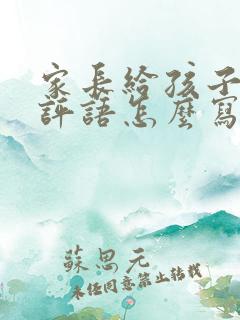 家長給孩子
評語怎麼寫
蘇思元
未經同意禁止轉載